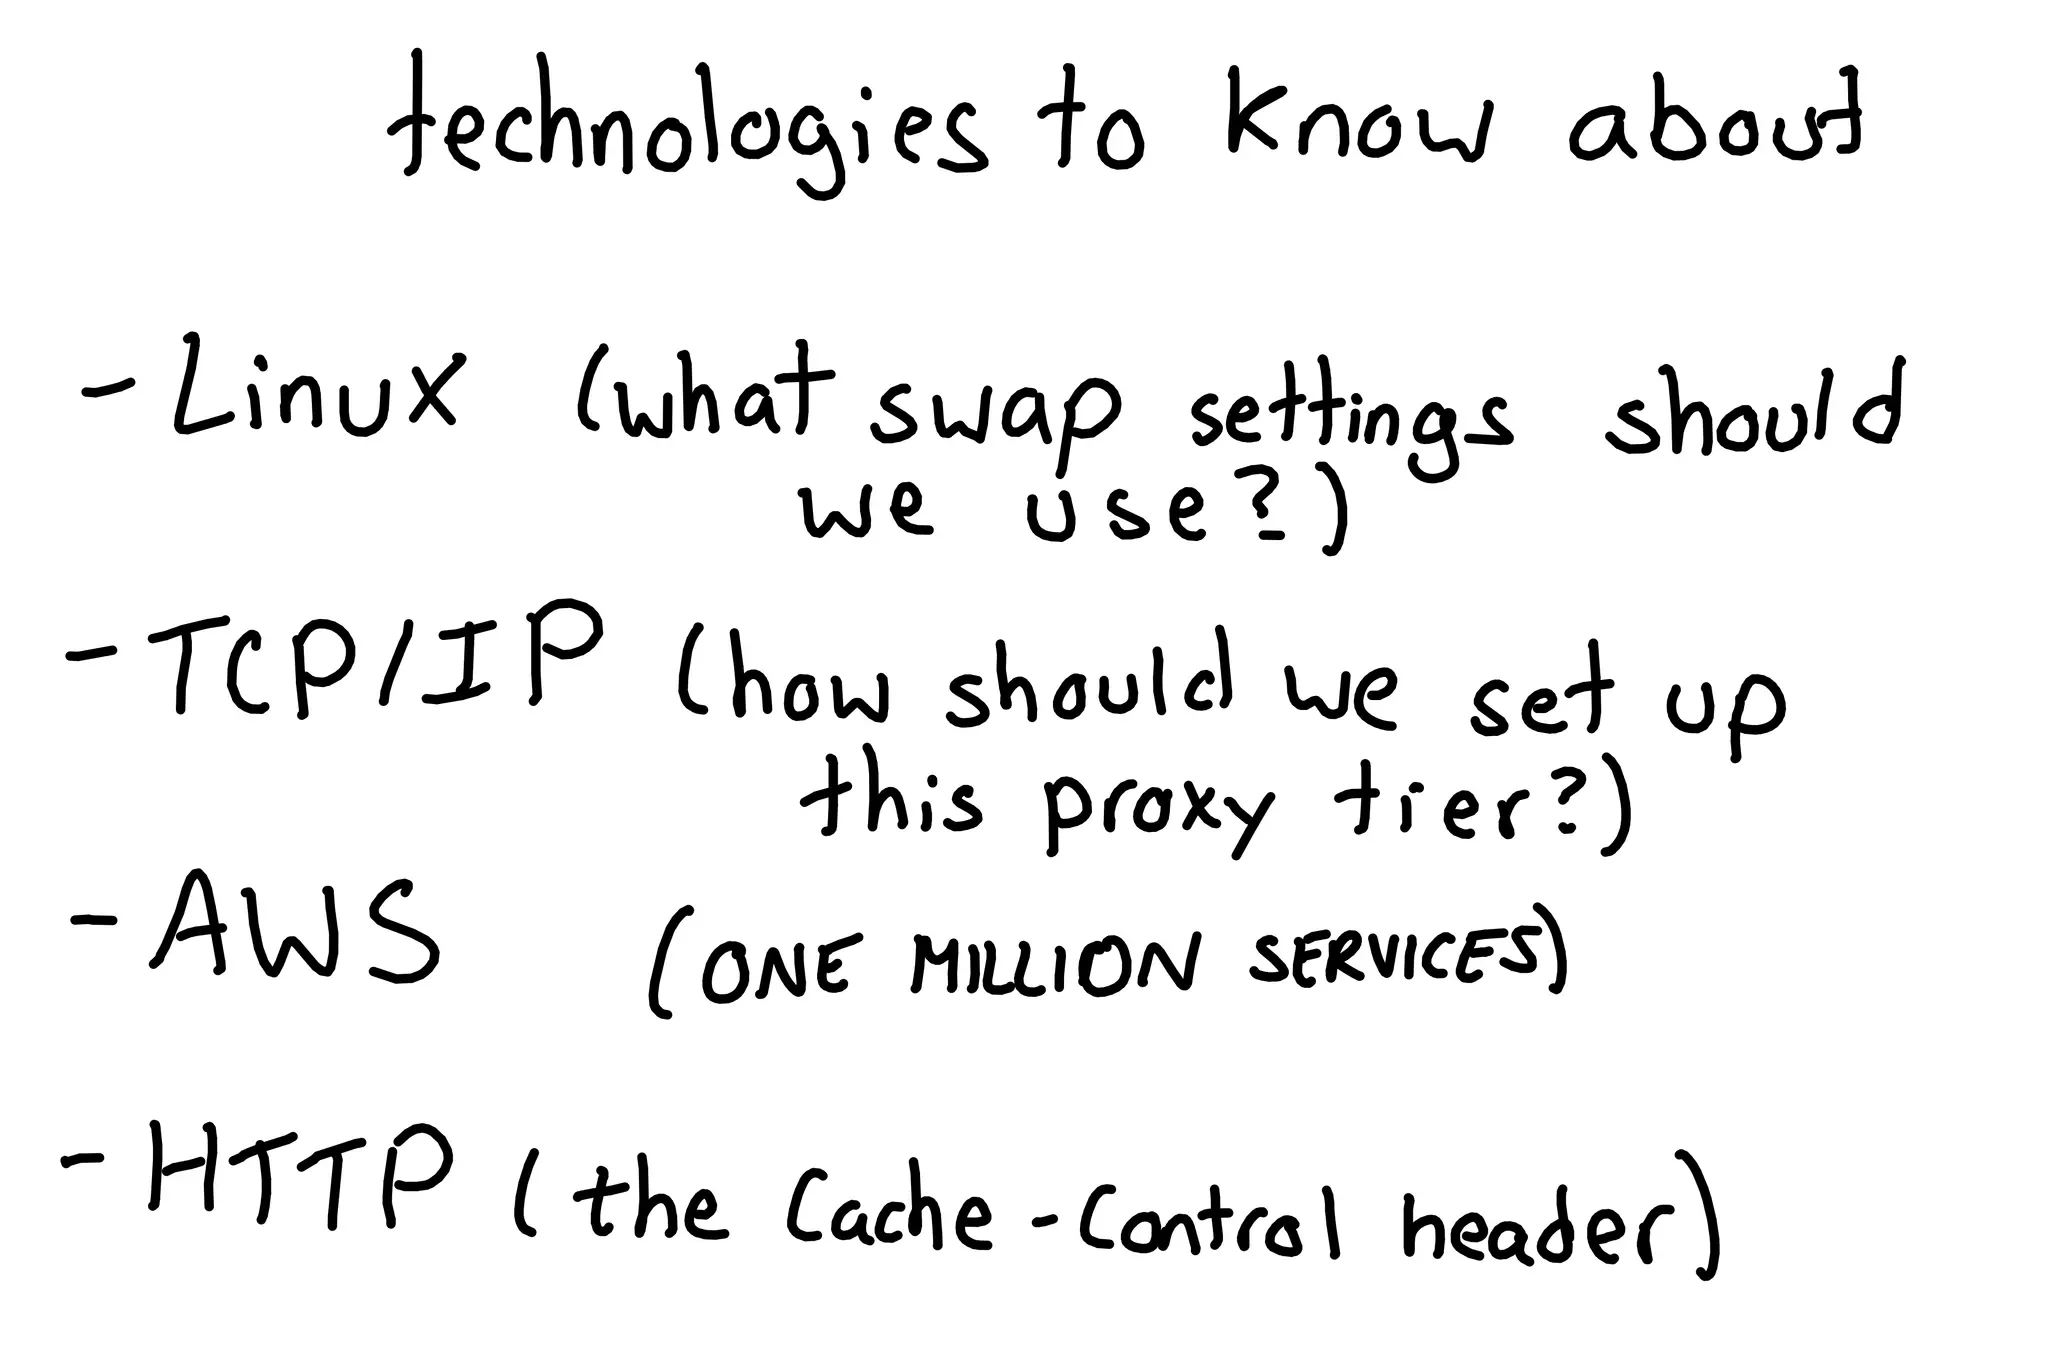 technologies to know about
- Linux (what swap settings should
we use?)
- TCP/IP (how should we set up
this proxy tier?)
- AWS (ONE MILLION SERVICES)
- HTTP (the Cache-Control header)